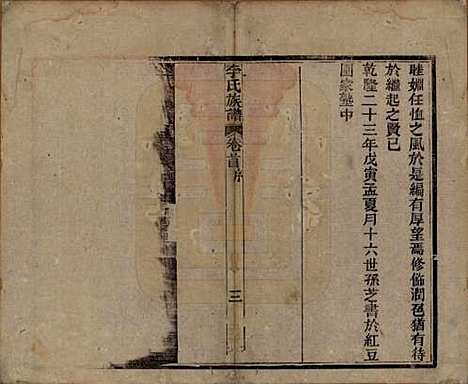 睦婣任恤之風於是編有厚望焉修飾潤色猶有待
於繼起之賢已
乾隆二十三年戊寅孟夏月十六世孫芝書於紅豆
園家塾中
李氏族譜 卷首序 三